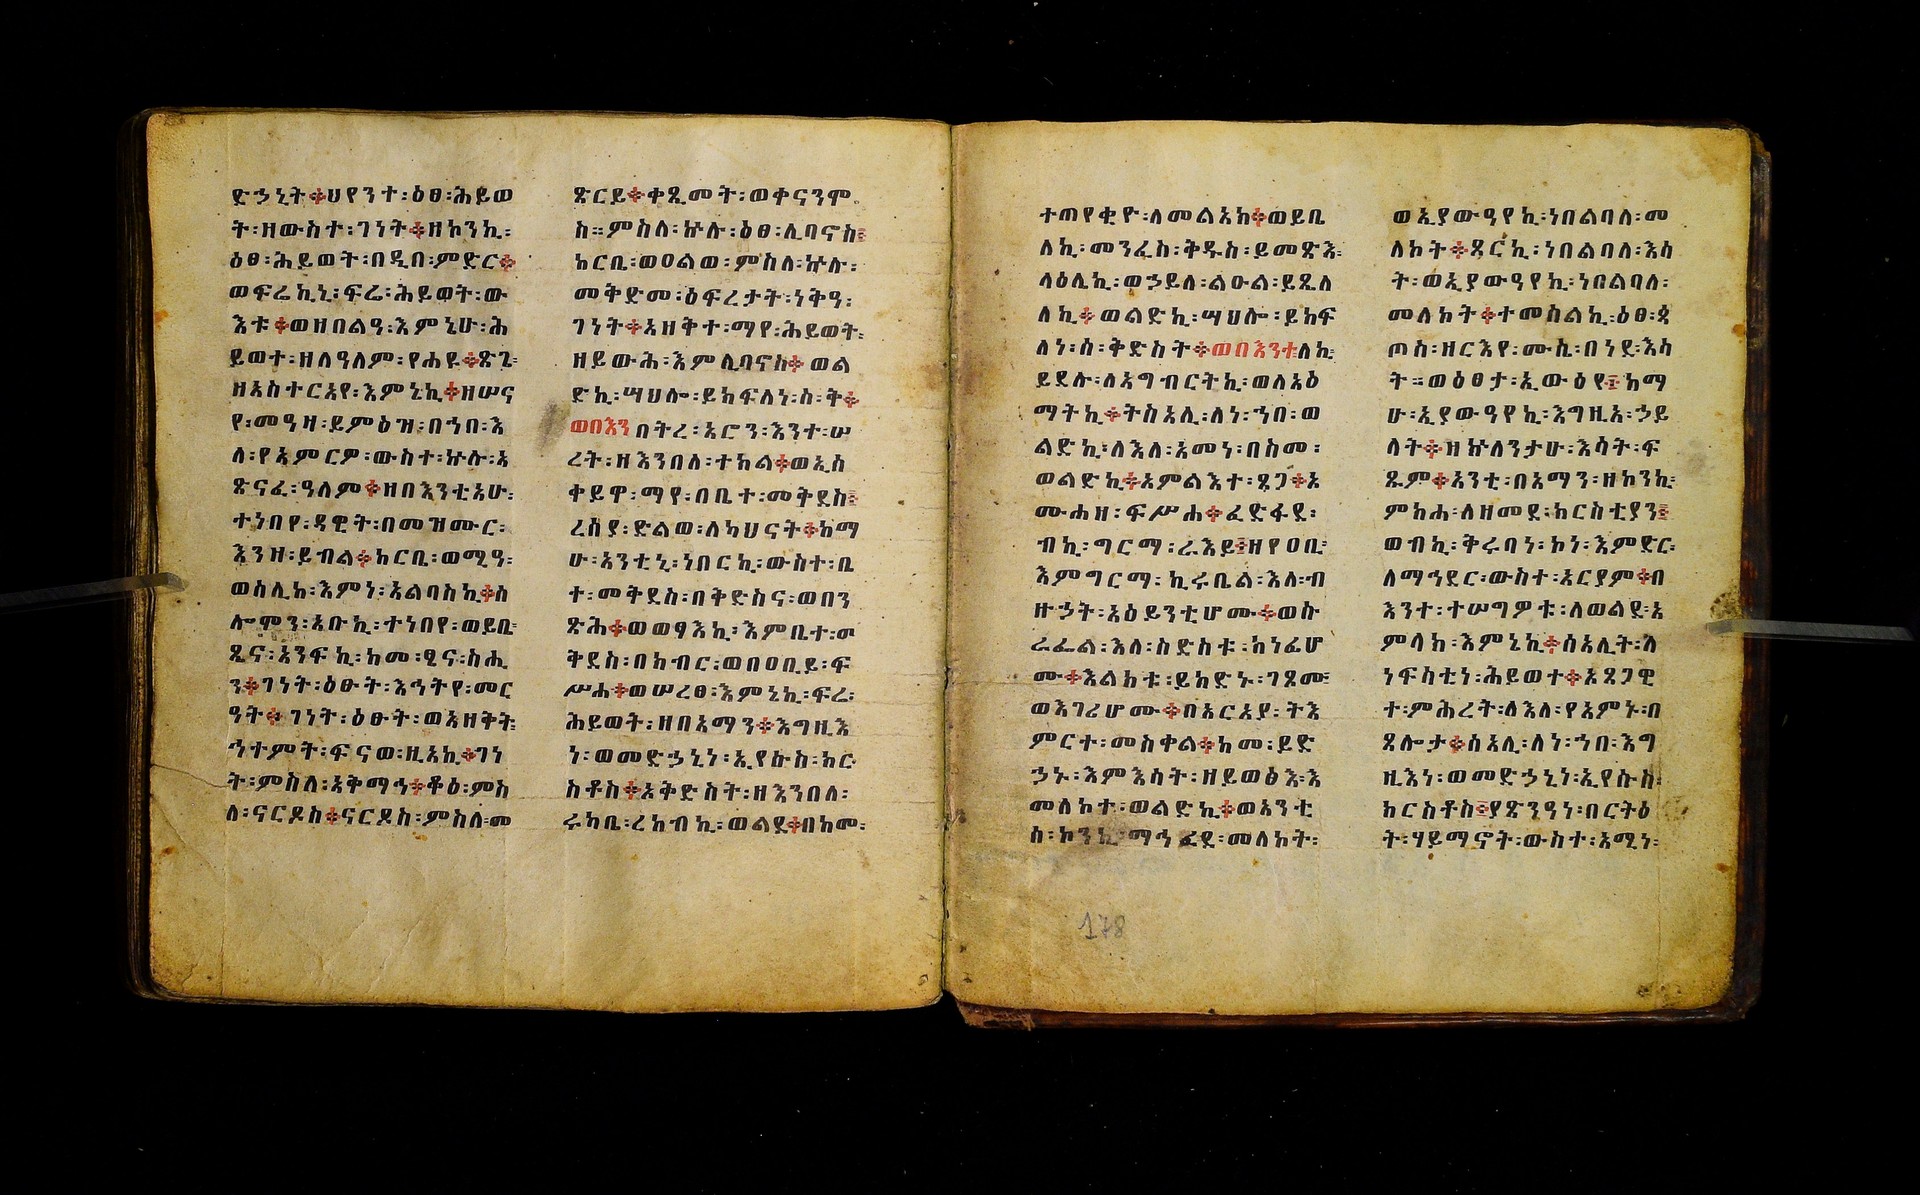 ድኃኒት፨ህየንተ፡ዕፀ፡ሕይወ
ት፡ዘውስተ፡ገነት፨ዘኮንኪ፡
ዕፀ፡ሕይወት፡በዲበ፡ምድር፨
ወፍሬኪኒ፡ፍሬ፡ሕይወት፡ው
እቱ፨ወዘበልዓ፡እምኔሁ፡ሕ
ይወተ፡ዘለዓለም፡የሐዩ፨ጽጌ፡
ዘአስተርአየ፡እምኔኪ፨ዘሠና
የ፡መዓዛ፡ይምዕዝ፡በኀበ፡እ
ለ፡የአምርዎ፡ውስተ፡ኵሉ፡አ
ጽናፈ፡ዓለም፨ዘበእንቲአሁ፡
ተነበየ፡ዳዊት፡በመዝሙር፡
እንዘ፡ይብል፨ከርቤ፡ወሚዓ፡
ወስሊከ፡እምነ፡አልባስኪ፨ሰ
ሎሞን፡አቡኪ፡ተነበየ፡ወይቤ፡
ጼና፡አንፍኪ፡ከመ፡ፄና፡ስሒ
ን፨ገነት፡ዕፁት፡እኅትየ፡መር
ዓት፨ገነት፡ዕፁት፡ወአዘቅት፡
ኅተምት፡ፍናወ፡ዚአኪ፨ገነ
ት፡ምስለ፡አቅማኅ፨ቆዕ፡ምስ
ለ፡ናርዶስ፨ናርዶስ፡ምስለ፡መ
ጽርይ፨ቀጺመት፡ወቀናንሞ
ስ።ምስለ፡ኵሉ፡ዕፀ፡ሊባኖስ፨
ከርቤ፡ወዐልወ፡ምስለ፡ኵሉ፡
መቅድመ፡ዕፍረታት፡ነቅዓ፡
ገነት፨አዘቅተ፡ማየ፡ሕይወት፡
ዘይውሕ፡እምሊባኖስ፨ወል
ድኪ፡ሣህሎ፡ይክፍለነ፡ስ፡ቅ፨
ወበእንበትረ፡አሮን፡እንተ፡ሠ
ረት፡ዘእንበለ፡ተከል፨ወኢስ
ቀይዋ፡ማየ፡በቤተ፡መቅደስ፨
ረሰያ፡ድልወ፡ለካህናት፨ከማ
ሁ፡አንቲኒ፡ነበርኪ፡ውስተ፡ቤ
ተ፡መቅደስ፡በቅድስና፡ወበን
ጽሕ፨ወወፃእኪ፡እምቤተ፡መ
ቅደስ፡በክብር፡ወበዐቢይ፡ፍ
ሥሐ፨ወሠረፀ፡እምኔኪ፡ፍሬ፡
ሕይወት፡ዘበአማን፨እግዚእ
ነ፡ወመድኃኒነ፡ኢየሱስ፡ክር
ስቶስ፨ኦቅድስት፡ዘእንበለ፡
ሩካቤ፡ረከብኪ፡ወልደ፨በከመ፡
ተጠየቂዮ፡ለመልአክ፨ወይቤ
ለኪ፡መንፈስ፡ቅዱስ፡ይመጽእ፡
ላዕሌኪ፡ወኃይለ፡ልዑል፡ይጼለ
ለኪ፨ወልድኪ፡ሣህሎ፡ይክፍ
ለነ፡ስ፡ቅድስት፨ወበእንተ፡ለኪ፡
ይደሉ፡ለአግብርትኪ፡ወለአዕ
ማትኪ፨ትስአሊ፡ለነ፡ኀበ፡ወ
ልድኪ፡ለእለ፡አመነ፡በስመ፡
ወልድኪ፨አምልእተ፡ጸጋ፨አ
ሙሐዘ፡ፍሥሐ፨ፈድፋደ፡
ብኪ፡ግርማ፡ራእይ፨ዘየዐቢ፡
እምግርማ፡ኪሩቤል፡እለ፡ብ
ዙኃት፡አዕይንቲሆሙ፨ወሱ
ራፌል፡እለ፡ስድስቱ፡ክነፊሆ
ሙ፨እልክቱ፡ይከድኑ፡ገጾሙ፡
ወእገሪሆሙ፨በአርአያ፡ትእ
ምርተ፡መስቀል፨ከመ፡ይድ
ኃኑ፡እምእሳት፡ዘይወፅእ፡እ
መለኮተ፡ወልድኪ፨ወአንቲ
ሰ፡ኮንኪ፡ማኅፈደ፡መለኮት፡
ወኢያውዓየኪ፡ነበልባለ፡መ
ለኮት፨ጾርኪ፡ነበልባለ፡እሳ
ት፡ወኢያውዓየኪ፡ነበልባለ፡
መለኮት፨ተመሰልኪ፡ዕፀ፡ጳ
ጦስ፡ዘርእየ፡ሙሴ፡በነደ፡እሳ
ት።ወዕፀታ፡ኢውዕየ፨ከማ
ሁ፡ኢያውዓየኪ፡እግዚአ፡ኃይ
ላት፨ዘኵለንታሁ፡እሳት፡ፍ
ጹም፨አንቲ፡በአማን፡ዘኮንኪ፡
ምክሐ፡ለዘመደ፡ክርስቲያን፨
ወብኪ፡ቅሩባነ፡ኮነ፡እምድር፡
ለማኅደር፡ውስተ፡አርያም፨በ
እንተ፡ተሠግዎቱ፡ለወልደ፡አ
ምላክ፡እምኔኪ፨ሰአሊት፡ለ
ነፍስቲነ፡ሕይወተ፨አጸጋዊ
ት፡ምሕረት፡ለእለ፡የአምኑ፡በ
ጸሎታ፨ሰአሊ፡ለነ፡ኀበ፡እግ
ዚእነ፡ወመድኃኒነ፡ኢየሱስ፡
ክርስቶስ፨ያጽንዓነ፡በርትዕ
ት፡ሃይማኖት፡ውስተ፡አሚነ፡
178